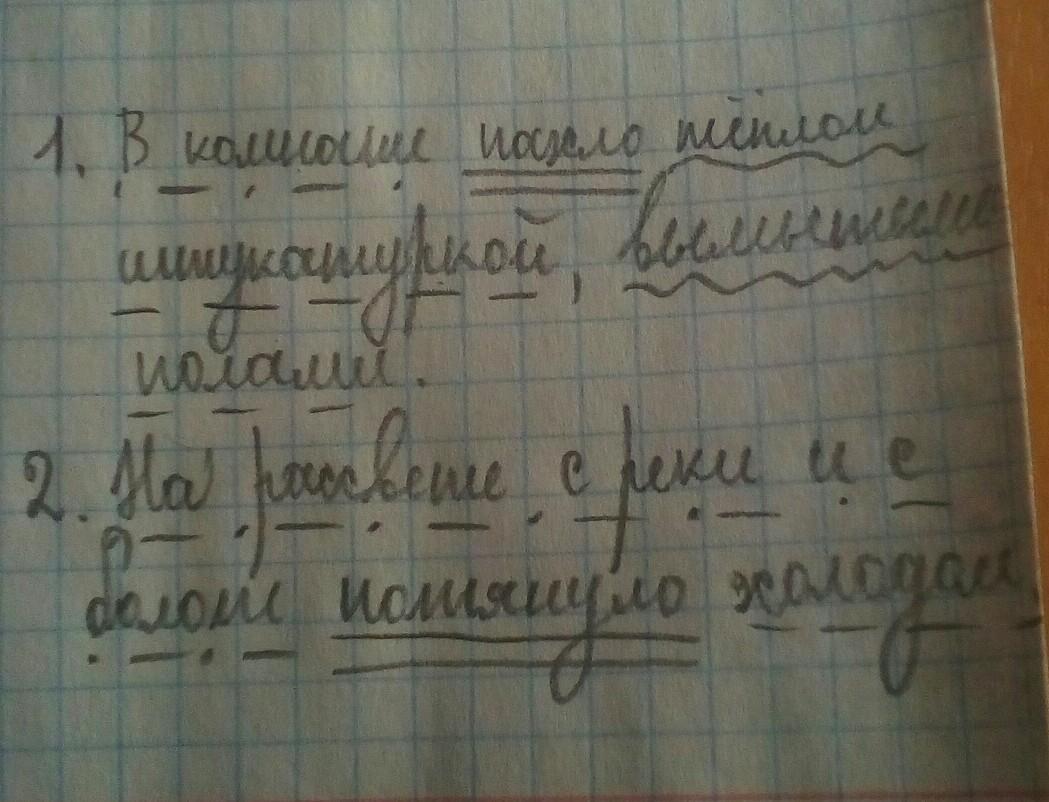 1. В комнате пахло тёплой
штукатуркой, вымытыми
полами.
2. На рассвете с реки и с
болот потянуло холодом.